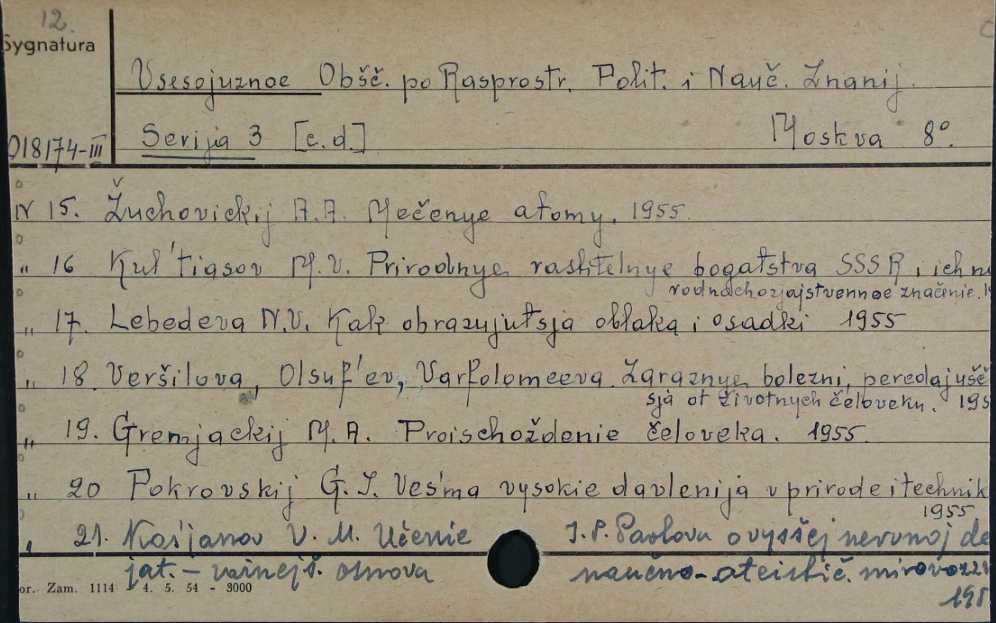 12.
Sygnatura
Vsesojuznoe Obšč. po Rasprostr. Polit. i Nauč. Znanij.
018174-III Serija 3 [c.d.] Moskva 8°
IV 15. Žuchovickij A.A. Mečenye atomy. 1955.
" 16 Kul'tiasov M.V. Prirodnye rastitelnye bogatstva SSSR i ich na
rodnochozjajstvennoe značenie. 19
" 17. Lebedeva N.V. Kak obrazujutsja oblaka i osadki 1955
" 18. Veršilova, Olsuf'ev, Varfolomeeva. Zaraznye bolezni, peredajušč
sja ot životnych čeloveku. 195
" 19. Gremjackij M.A. Proischoždenie čeloveka. 1955.
" 20 Pokrovskij G.I. Ves'ma vysokie davlenija v prirode i technik
1955
" 21. Kas'janov V.M. Učenie I.P. Pavlova o vysšej nervnoj de
jat. – važnejš. osnova naučno-ateistič. mirovozzr
195
or. Zam. 1114 4. 5. 54 - 3000